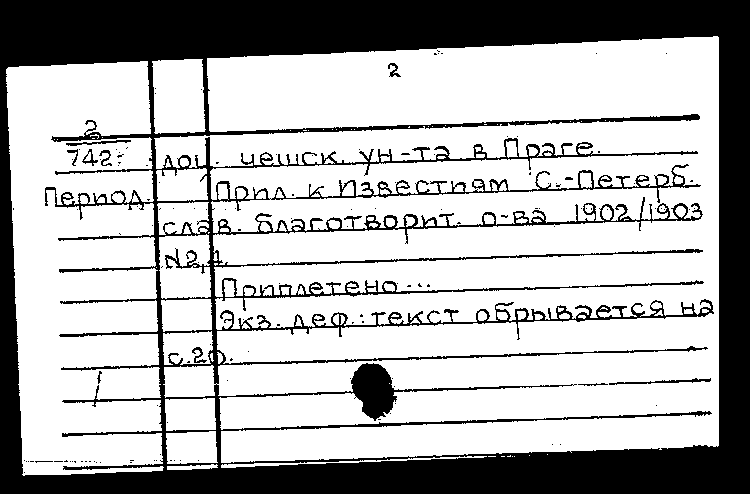 2
2
742: доц. чешск. ун-та в Праге.
Период. Прил. к Известиям С.-Петерб.
слав. благотворит. о-ва 1902/1903
N2,4.
Приплетено...
Экз. деф.: текст обрывается на
с.20.